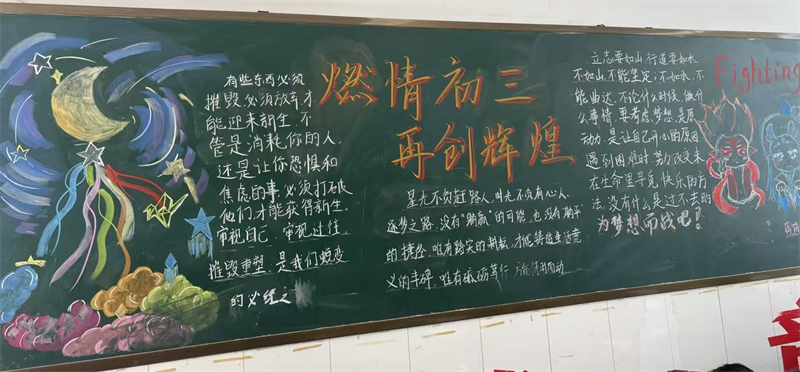 有些东西必须
摧毁必须放弃才
能迎来新生.不
管是消耗你的人.
还是让你恐惧和
焦虑的事.必须打破
他们才能获得新生.
审视自己.审视过往
摧毁重塑.是我们蜕变
的必经之
燃情初三
再创辉煌
星光不负赶路人.时光不负有心人.
逐梦之路.没有"躺赢"的可能.也没有
的捷径.唯有踏实的耕耘.才能铸造生活意
义的丰碑.唯有砥砺笃行
立志要如山.行道要如水
不如山.不能坚定.不如水.不
能曲达.不论什么时候.做什
么事情.要考虑.梦想.是原
动力.是让自己开心的原因
遇到困难时.努力改变未来
在生命里寻觅快乐的方
法.没有什么是过不去的
为梦想而战吧!
Fighting